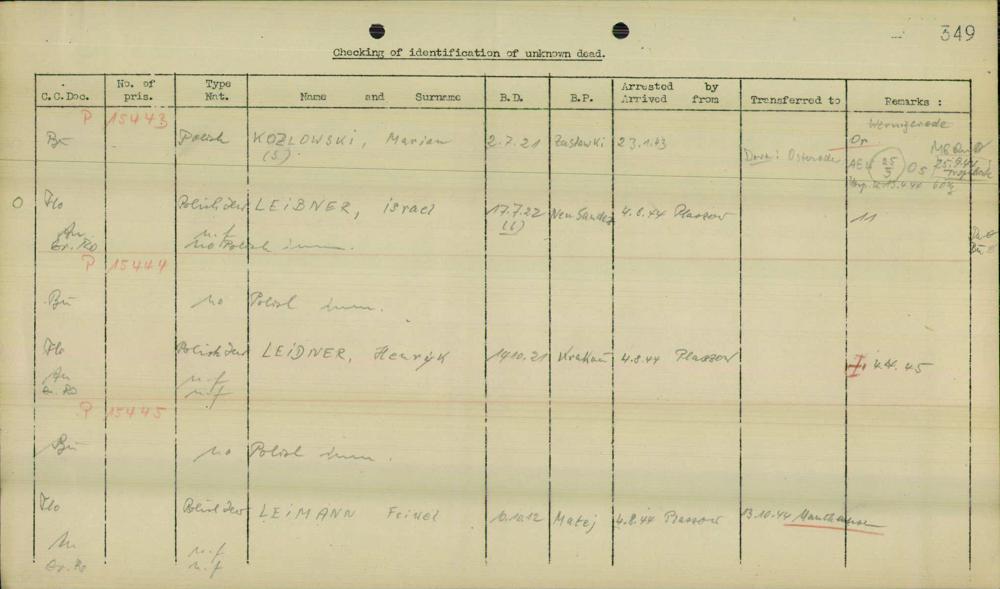 349
Checking of identification of unknown dead.
C.C.Doc. No. of pris. Type Nat. Name and Surname B.D. B.P. Arrested by Arrived from Transferred to Remarks :
P 15443 Wernigerode
Bu Polish KOZLOWSKI, Marian 2.7.21 Zaslawki 23.1.43 Or
(S) Dora: Osterode AEH 25/3 Os 25.9.44
Flo Polish Jew LEIBNER, israel 17.7.22 Neu Sandez 4.8.44 Plassow 11
(6)
Au n.f
Gr. Ro no Polish inm.
P 15444
Bu no Polish inm.
Flo Polish Jew LEIDNER, Henryk 14.10.21 Krakau 4.8.44 Plassow 4.4.45
Au n.f
Gr. Ro n.f
P 15445
Bu no Polish inm.
Flo Polish Jew LEIMANN Feiwel 10.12 Matej 4.8.44 Plassow 13.10.44 Mauthausen
Au n.f
Gr. Ro n.f